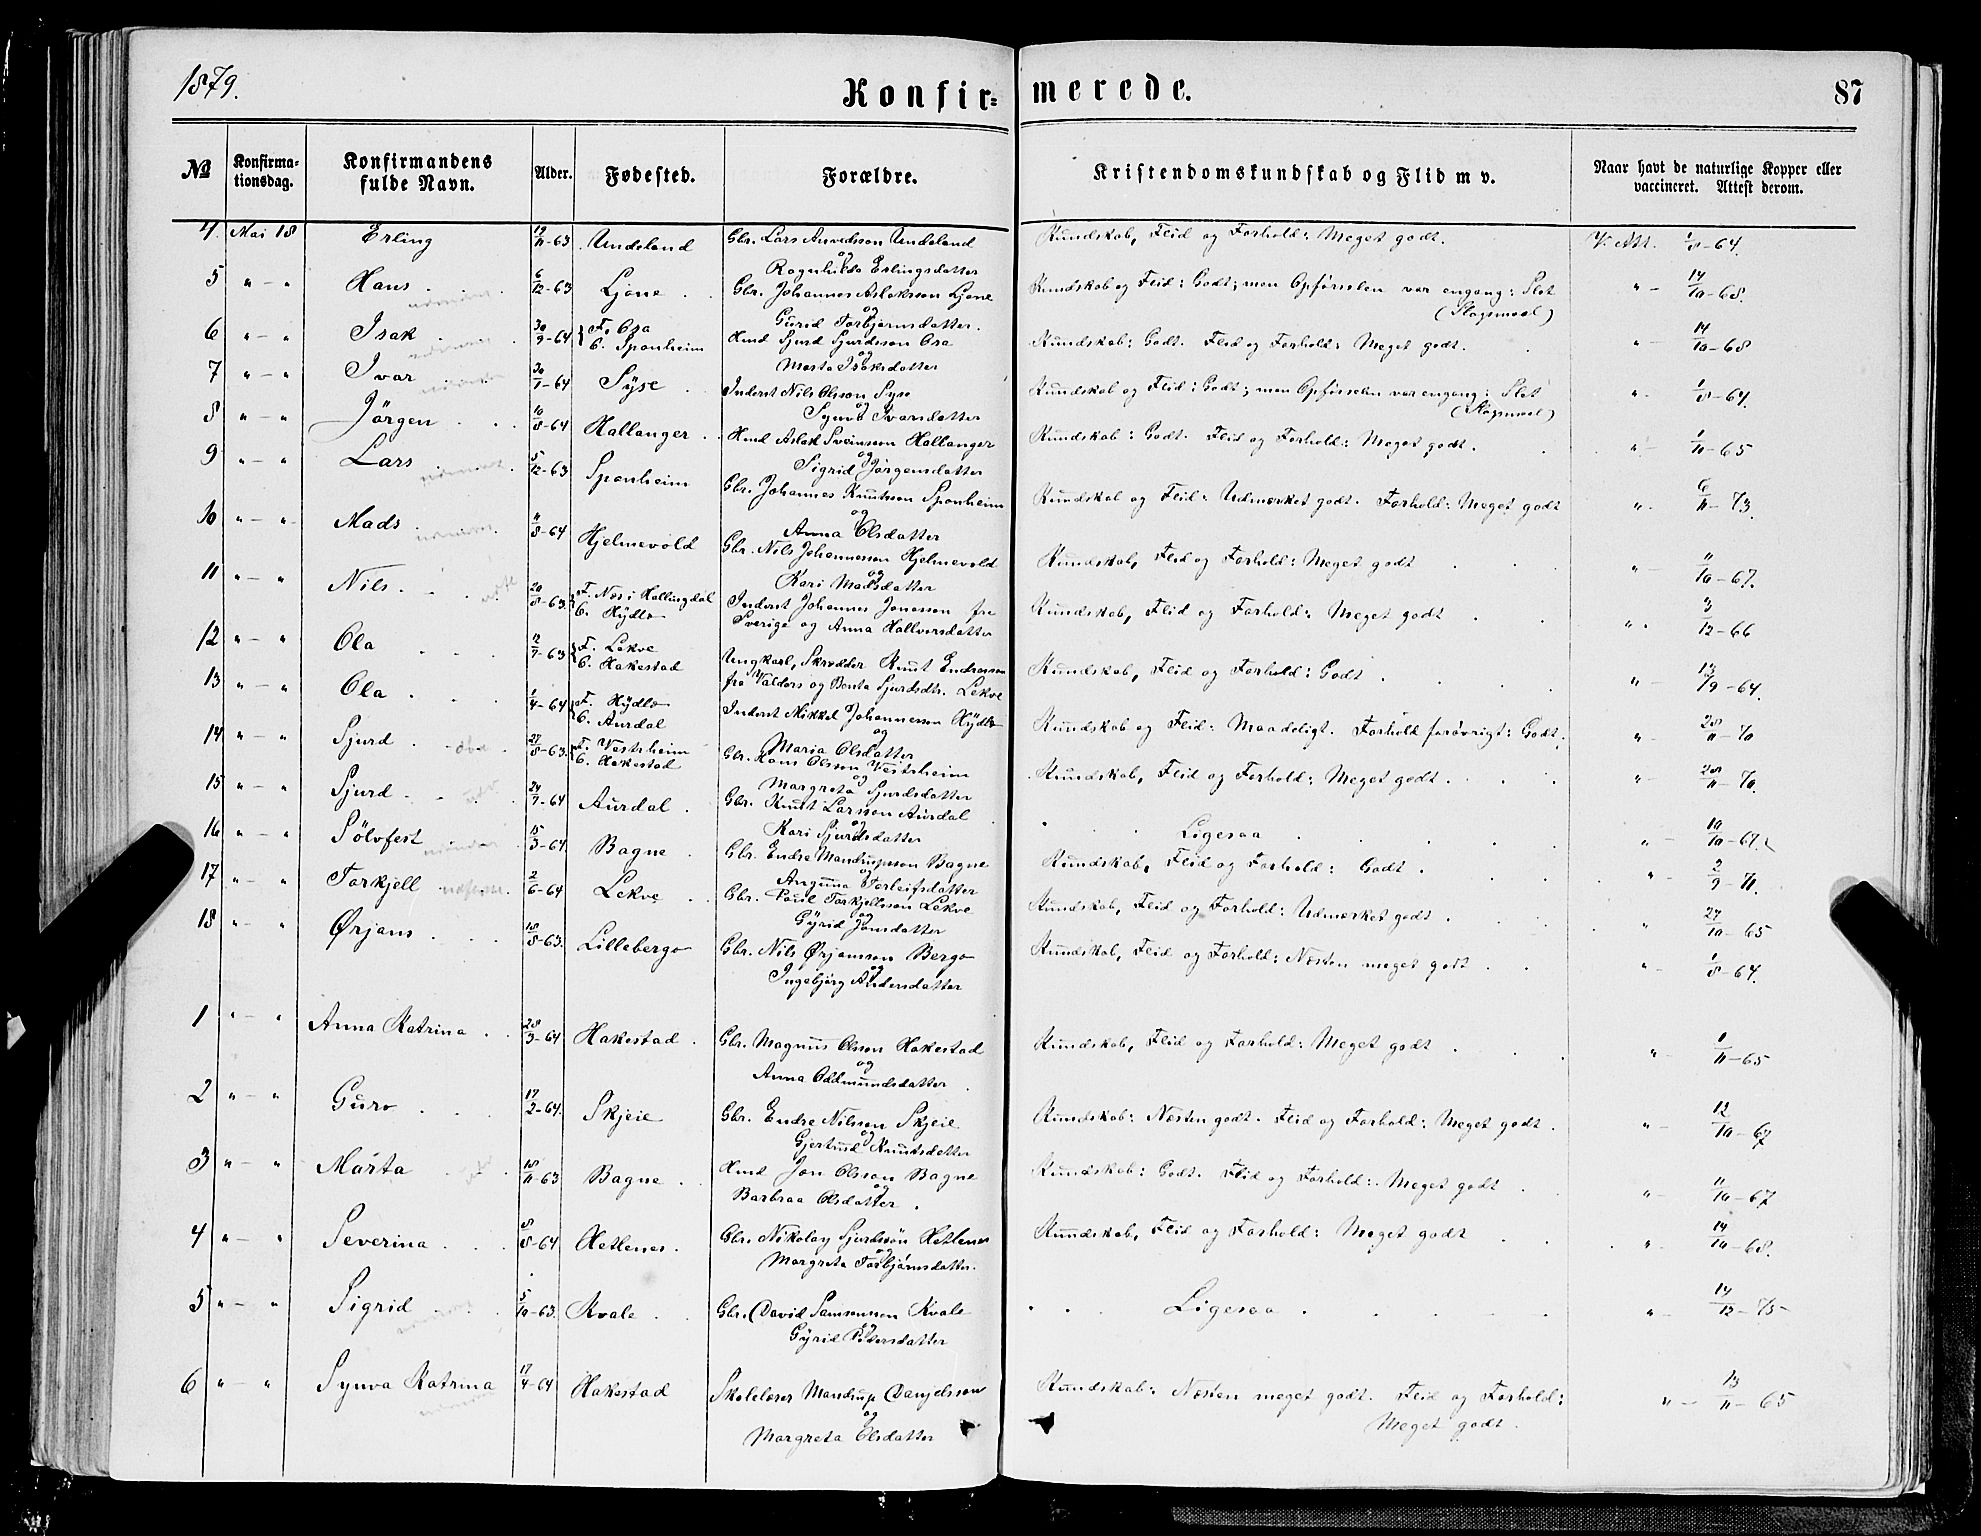 1879.
Konfir= merede.
87
No
Konfirma-
tionsdag.
Konfirmandens
fulde Navn.
Alder.
Fødested.
Forældre.
Kristendomskundskab og Flid m v.
Naar havt de naturlige Kopper eller
vaccineret. Attest derom.
4. Mai 18 Erling 19/11-63 Undeland Gbr. Lars Undeland Kundskab, Flid og Forhold: Meget godt. Att. 1/8-64.
og
Ragnhilda Erlingsdatter
5 " - " Hans 6/12-63 Ljone Gbr. Johannes Aslaksson Ljone Kundskab og Flid: Godt; men Opførselen var engang: Slet " - 14/10-68.
og
Gurid Torbjørnsdatter. (Slagsmaal)
6 " - " Isak 30/9-64 F. Osa Hmd Sjurd Sjurdsson Osa Kundskab: Godt. Flid og Forhold: Meget godt. " - 14/10-68
O. Sponheim og
Marta Isaksdatter
7 " - " Ivar 30/1-64 Syse Inderst Nils Olsson Syse Kundskab og Flid: Godt; men Opførselen var engang: Slet " - 1/8-64.
og
Synva Ivarsdatter (Slagsmaal)
8 " - " Jörgen 10/8-64 Hallanger Hmd Aslak Sveinsson Hallanger Kundskab: Godt. Flid og Forhold: Meget godt. " - 1/10-65
og
Sigrid Jörgensdatter
9 " - " Lars 5/12-63 Sponheim Gbr. Johannes Knutsson Sponheim Kundskab og Flid: Udmærket godt. Forhold: Meget godt " - 6/11-73.
og
Anna Olsdatter
10 " - " Mads 11/8-64 Hjelmevold Gbr. Nils Johannesson Hjelmevold Kundskab, Flid og Forhold: Meget godt " - 11/10-67.
og
Kari Madsdatter
11 " - " Nils 20/8-63 F. Næs i Hallingdal Inderst Johannes Jonesson fra Kundskab, Flid og Forhold: Meget godt " - 3/12-66
O. Hydle Sverige og Anna Hallvorsdatter
12 " - " Ola 12/7-63 F. Lekve Ungkarl, Skrædder Knut Endresson Kundskab, Flid og Forhold: Godt " - 13/9-64.
O. Hakestad fra Valders og Benta Sjurdsdtr. Lekve
13 " - " Ola 1/4-64 F. Hydle Inderst Mikkel Johannesson Hydle Kundskab og Flid: Maadeligt. Forhold forövrigt: Godt. " - 28/11-70
O. Aurdal og
Maria Olsdatter
14 " - " Sjurd 27/8-63 F. Vestrheim Gbr. Hans Olsson Vestrheim Kundskab, Flid og Forhold: Meget godt " - 28/11-70.
O. Hakestad og
Margreta Sjurdsdatter
15 " - " Sjurd 24/7-64 Aurdal Gbr. Knut Larsson Aurdal Ligesaa " - 10/10-67.
og
Kari Sjurdsdatter
16 " - " Sölvfest 15/3-64 Bagne Gbr. Endre Mandrupsson Bagne Kundskab, Flid og Forhold: Godt " - 2/9-71.
og
Anguna Torleifsdatter
17 " - " Torkjell 2/6-64 Lekve Gbr. Poul Torkjellsson Lekve Kundskab, Flid og Forhold: Udmærket godt " - 27/10-65
og
Gyrid Jonsdatter
18 " - " Ørjans 18/8-63. Lillebergo Gbr. Nils Ørjansson Bergo Kundskab, Flid og Forhold: Næsten meget godt " - 1/8-64.
og
Ingebjørg Andersdatter
1 " - " Anna Katrina 28/3-64 Hakestad Gbr. Magnus Olsson Hakestad Kundskab, Flid og Forhold: Meget godt " - 1/11-65
og
Anna Oddmundsdatter
2 " - " Guro 17/2-64. Skjeie Gbr. Endre Nilsson Skjeie Kundskab: Næsten godt. Flid og Forhold: Meget godt. " - 12/10-67
og
Gjertrud Knutsdatter
3 " - " Márta 18/11-63 Bagne Hmd Jon Olsson Bagne Kundskab: Godt. Flid og Forhold: Meget godt " - 11/10-67
og
Barbraa Olsdatter.
4 " - " Severina 8/8-64 Hetlenes. Gbr. Nikolay Sjurdsson Hetlenes Kundskab, Flid og Forhold: Meget godt " - 14/10-68.
og
Margreta Torbjörnsdatter.
5 " - " Sigrid 5/10-63. Kvale Gbr. David Samsonson Kvale Ligesaa " - 14/12-75
og
Gyrid Petersdatter
6 " - " Synva Katrina 17/4-64 Hakestad Skolelærer Mandrup Danjelsson Kundskab: Næsten meget godt. Flid og Forhold: " - 13/11-65
og Meget godt.
Margreta Olsdatter